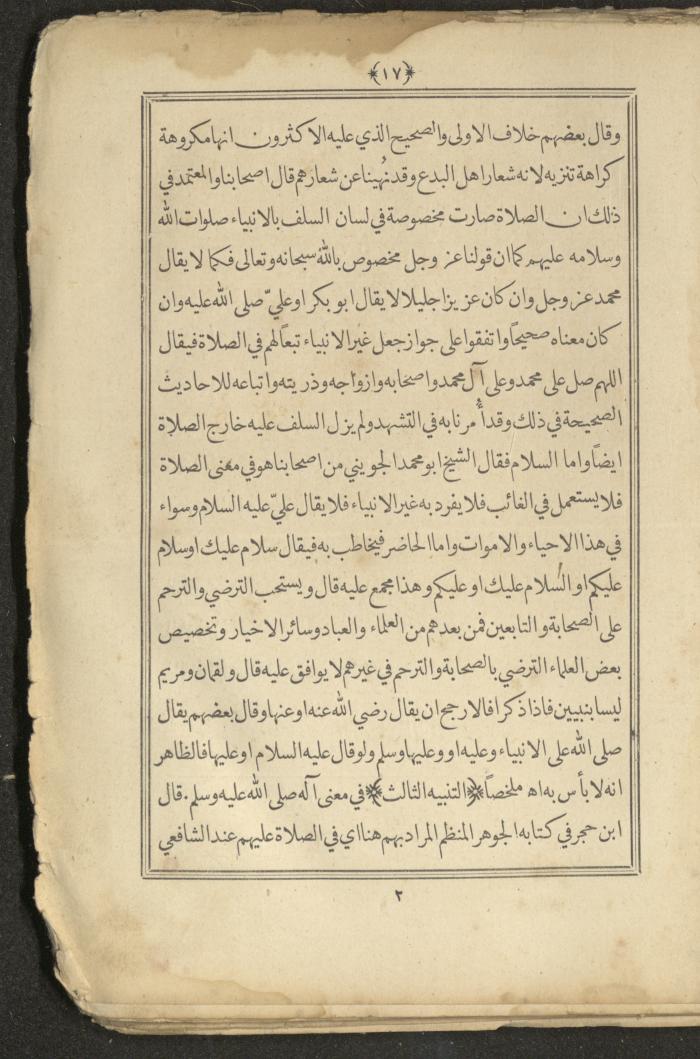 ﴿١٧﴾
وقال بعضهم خلاف الاولى والصحيح الذي عليه الاكثرون انها مكروهة
كراهة تنزيه لانه شعار اهل البدع وقد نُهينا عن شعارهم قال اصحابنا والمعتمد في
ذلك ان الصلاة صارت مخصوصة في لسان السلف بالانبياء صلوات الله
وسلامه عليهم كما ان قولنا عز وجل مخصوص باللهُ سبحانه وتعالى فكما لا يقال
محمد عز وجل وان كان عزيزا جليلا لا يقال ابو بكر او عليّ صلى الله عليه وان
كان معناه صحيحاً واتفقوا على جواز جعل غير الانبياء تبعاً لهم في الصلاة فيقال
اللهم صل على محمد وعلى آل محمد واصحابه وازواجه وذريته واتباعه للاحاديث
الصحيحة في ذلك وقد أُمرنا به في التشهد ولم يزل السلف عليه خارج الصلاة
ايضاً واما السلام فقال الشيخ ابو محمد الجويني من اصحابنا هو في معنى الصلاة
فلا يستعمل في الغائب فلا يفرد به غير الانبياء فلا يقال عليّ عليه السلام وسواء
في هذا الاحياء والاموات واما الحاضر فيخاطب به فيقال سلام عليك او سلام
عليكم او السُلام عليك او عليكم وهذا مجمع عليه قال ويستحب الترضي والترحم
على الصحابة والتابعين فمن بعدهم من العلماء والعباد وسائر الاخيار وتخصيص
بعض العلماء الترضي بالصحابة والترحم في غيرهم لا يوافق عليه قال ولقمان ومريم
ليسا بنبيين فاذا ذكرا فالارجح ان يقال رضي الله عنه او عنها وقال بعضهم يقال
صلى الله على الانبياء وعليه او وعليها وسلم ولو قال عليه السلام او عليها فالظاهر
انه لا بأس به اه ملخصاً ﴿التنبيه الثالث﴾ في معنى آله صلى الله عليه وسلم. قال
ابن حجر في كتابه الجوهر المنظم المراد بهم هنا اي في الصلاة عليهم عند الشافعي
٢